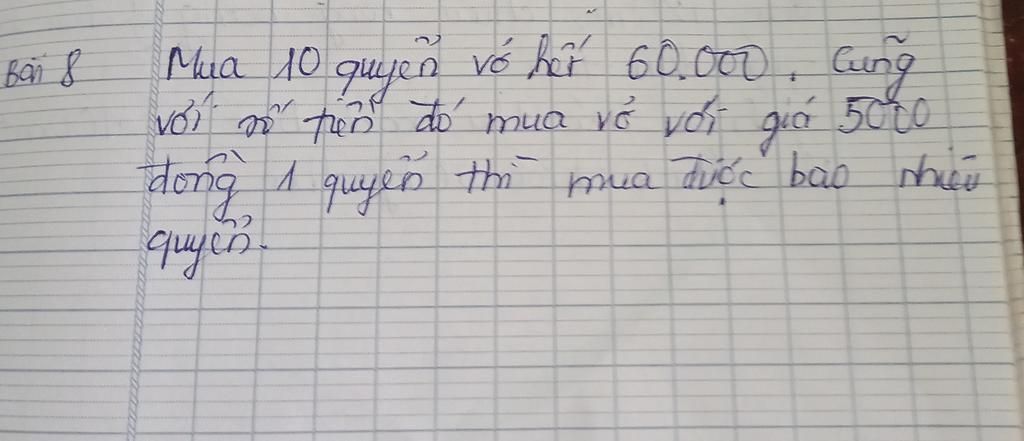 Bài 8 Mua 10 quyển vở hết 60.000. Cũng
với số tiền đó mua vở với giá 5000
đồng 1 quyển thì mua được bao nhiêu
quyển.